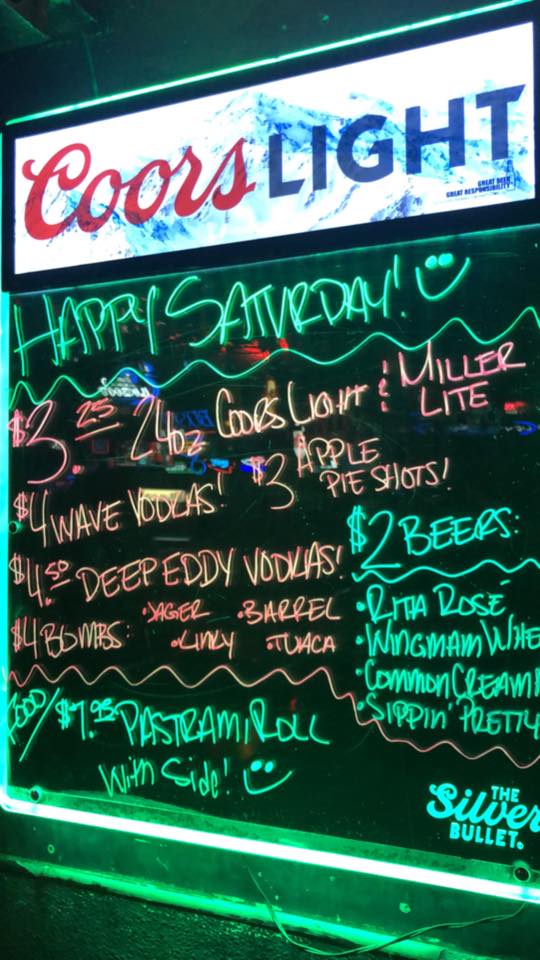 Coors LIGHT
GREAT BEER.
GREAT RESPONSIBILITY.
HAPPY SATURDAY!
$3.25 24oz COORS LIGHT & MILLER LITE
$4 WAVE VODKAS! $3 APPLE PIE SHOTS!
$4.50 DEEP EDDY VODKAS!
$4 BOMBS: •JAGER •BARREL
•KINKY •TUACA
$2 BEERS:
•RITA ROSÉ
•WINGMAM WHE
•COMMON CREAM
•SIPPIN' PRETTY
FOOD/ $7.95 PASTRAMI ROLL
With Side!
THE
Silver
BULLET.